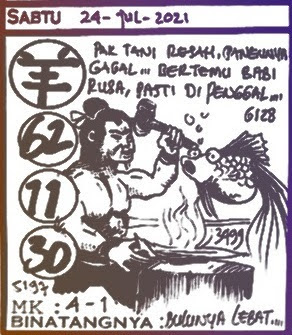 SABTU 24-JUL-2021
PAK TANI RESAH, PANENNYA
GAGAL... BERTEMU BABI
RUSA, PASTI DI PENGGAL...
6128
羊
62
11
30
3499
5197
MK : 4-1
BINATANGNYA : BULUNYA LEBAT....